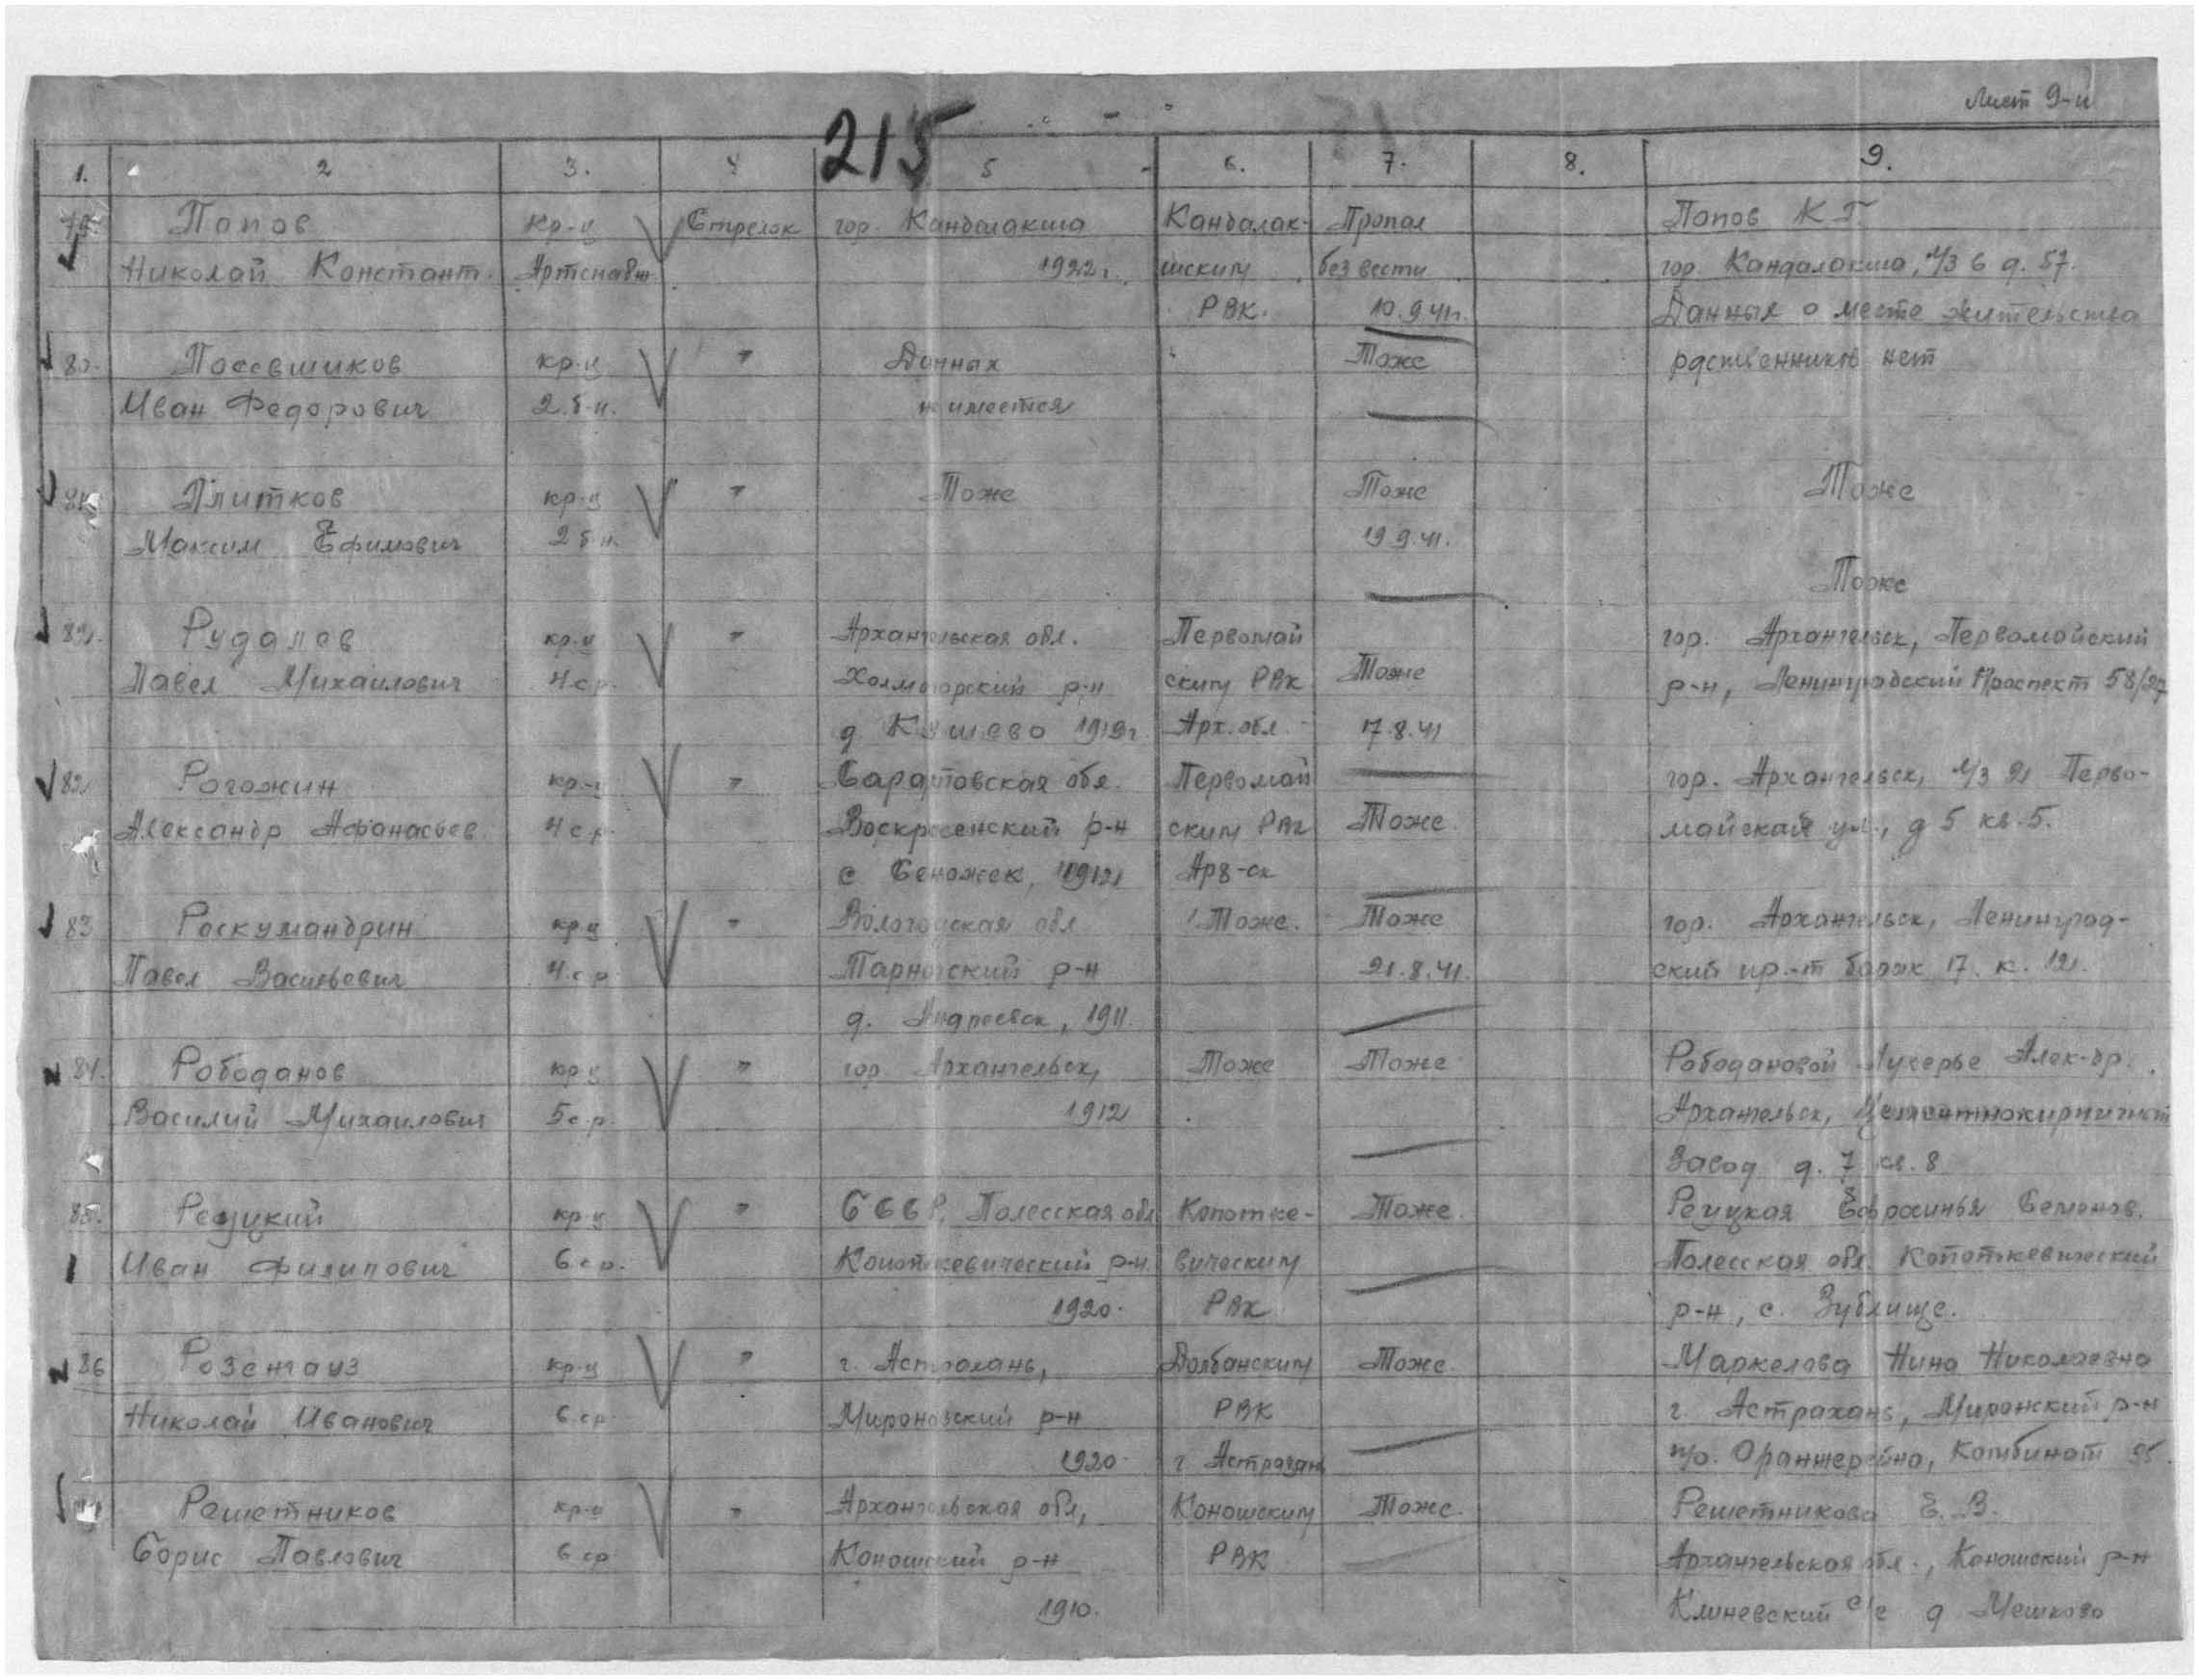 Лист 9-й
215
1. 2 3. 4 5 6. 7. 8. 9.
79. Попов кр-ц Стрелок гор. Кандалакша Кандалак- Пропал Попов К Г
Николай Константт. Артснабж. 1922г. шским без вести гор. Кандалакша, л/з 6 д. 57.
РВК. 10.9.41г. Данные о месте жительства
80. Посевшиков кр-ц " Данных Тоже родственников нет
Иван Федорович 2.б-н. не имеется
81. Плитков кр-ц " Тоже Тоже Тоже
Максим Ефимович 2 б-н. 19.9.41.
Тоже
Рудалев кр-ц " Архангельская обл. Первомай гор. Архангельск, Первомайский
Павел Михаилович 4 с.р. Холмогорский р-н ским РВК Тоже р-н, Ленинградский Проспект 58/27
д Кушево 1919г. Арх. обл. 17.8.41
82 Рогожин кр-ц " Саратовская обл. Первомай гор. Архангельск, л/з 21 Перво-
Александр Афанасьев. 4 с.р. Воскресенский р-н ским РВК Тоже. майская ул., д 5 кв. 5.
с 1912 Арх-ск
83 Роскумандрин кр-ц " Вологодская обл Тоже. Тоже гор. Архангельск, Ленинград-
Павел Васильевич 4.с.р. Тарногский р-н 21.8.41. ский пр.-т барак 17. к. 12.
д. 1911.
84. Рободанов кр-ц " гор Архангельск, Тоже Тоже Рободановой Лукерье Алек-др.
Василий Михаилович 5 с.р. 1912 Архангельск,
Завод д. 7 кв. 8
85. Рецуцкий кр-ц " БССР, Полесская обл Копотке- Тоже. Рецуцкая Ефросинья Семенов.
Иван Филипович 6 с.р. Копоткевический р-н. вическим Полесская обл. Копоткевический
1920. РВК р-н, с. Зублище.
86 Розенгауз кр-ц " г. Астрахань, Долбанским Тоже. Маркелова Нина Николаевна
Николай Иванович 6.с.р. р-н РВК г. Астрахань, р-н
1920. г. Астрахан п/о. Оранжерейно, Комбинат
Решетников кр-ц " Архангельская обл, Коношским Тоже. Решетникова Е. В.
Борис Павлович 6 с.р. Коношский р-н РВК Архангельская обл., Коношский р-н
1910. Клиневский с/с д Мешково